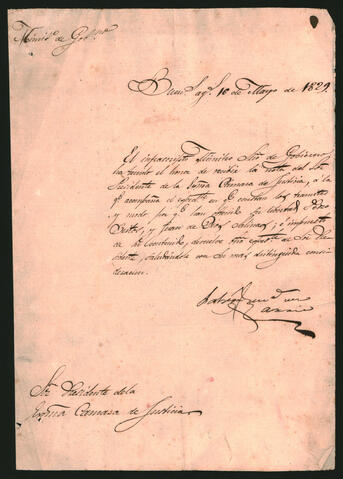 Minist.º de Gob.no
Buen.s Ay.s 10 de Mayo de 1829
El infrascripto Ministro Srio de Gobierno
ha tenido el honor de recibir la nota del Sr.
Presidente de la Exma Camara de Justicia, á la
q.e acompaña el espediente en q.e constan los
y modo por q.e han obtenido su libertad
y Juan de Dios Salinas; é impuesto
de su contenido, devuelve dho al Sr. Pre
sidente, saludandole con su mas distinguida consi
deracion.
Sr. Presidente de la
Exma Camara de Justicia